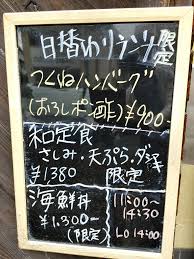 日替わりランチ 限定
つくねハンバーグ
(おろしポン酢) ¥900-
和定食
さしみ・天ぷら・ダシ
¥1380 限定
海鮮丼
¥1.300-
(限定)
11:00~
14:30
LO 14:00